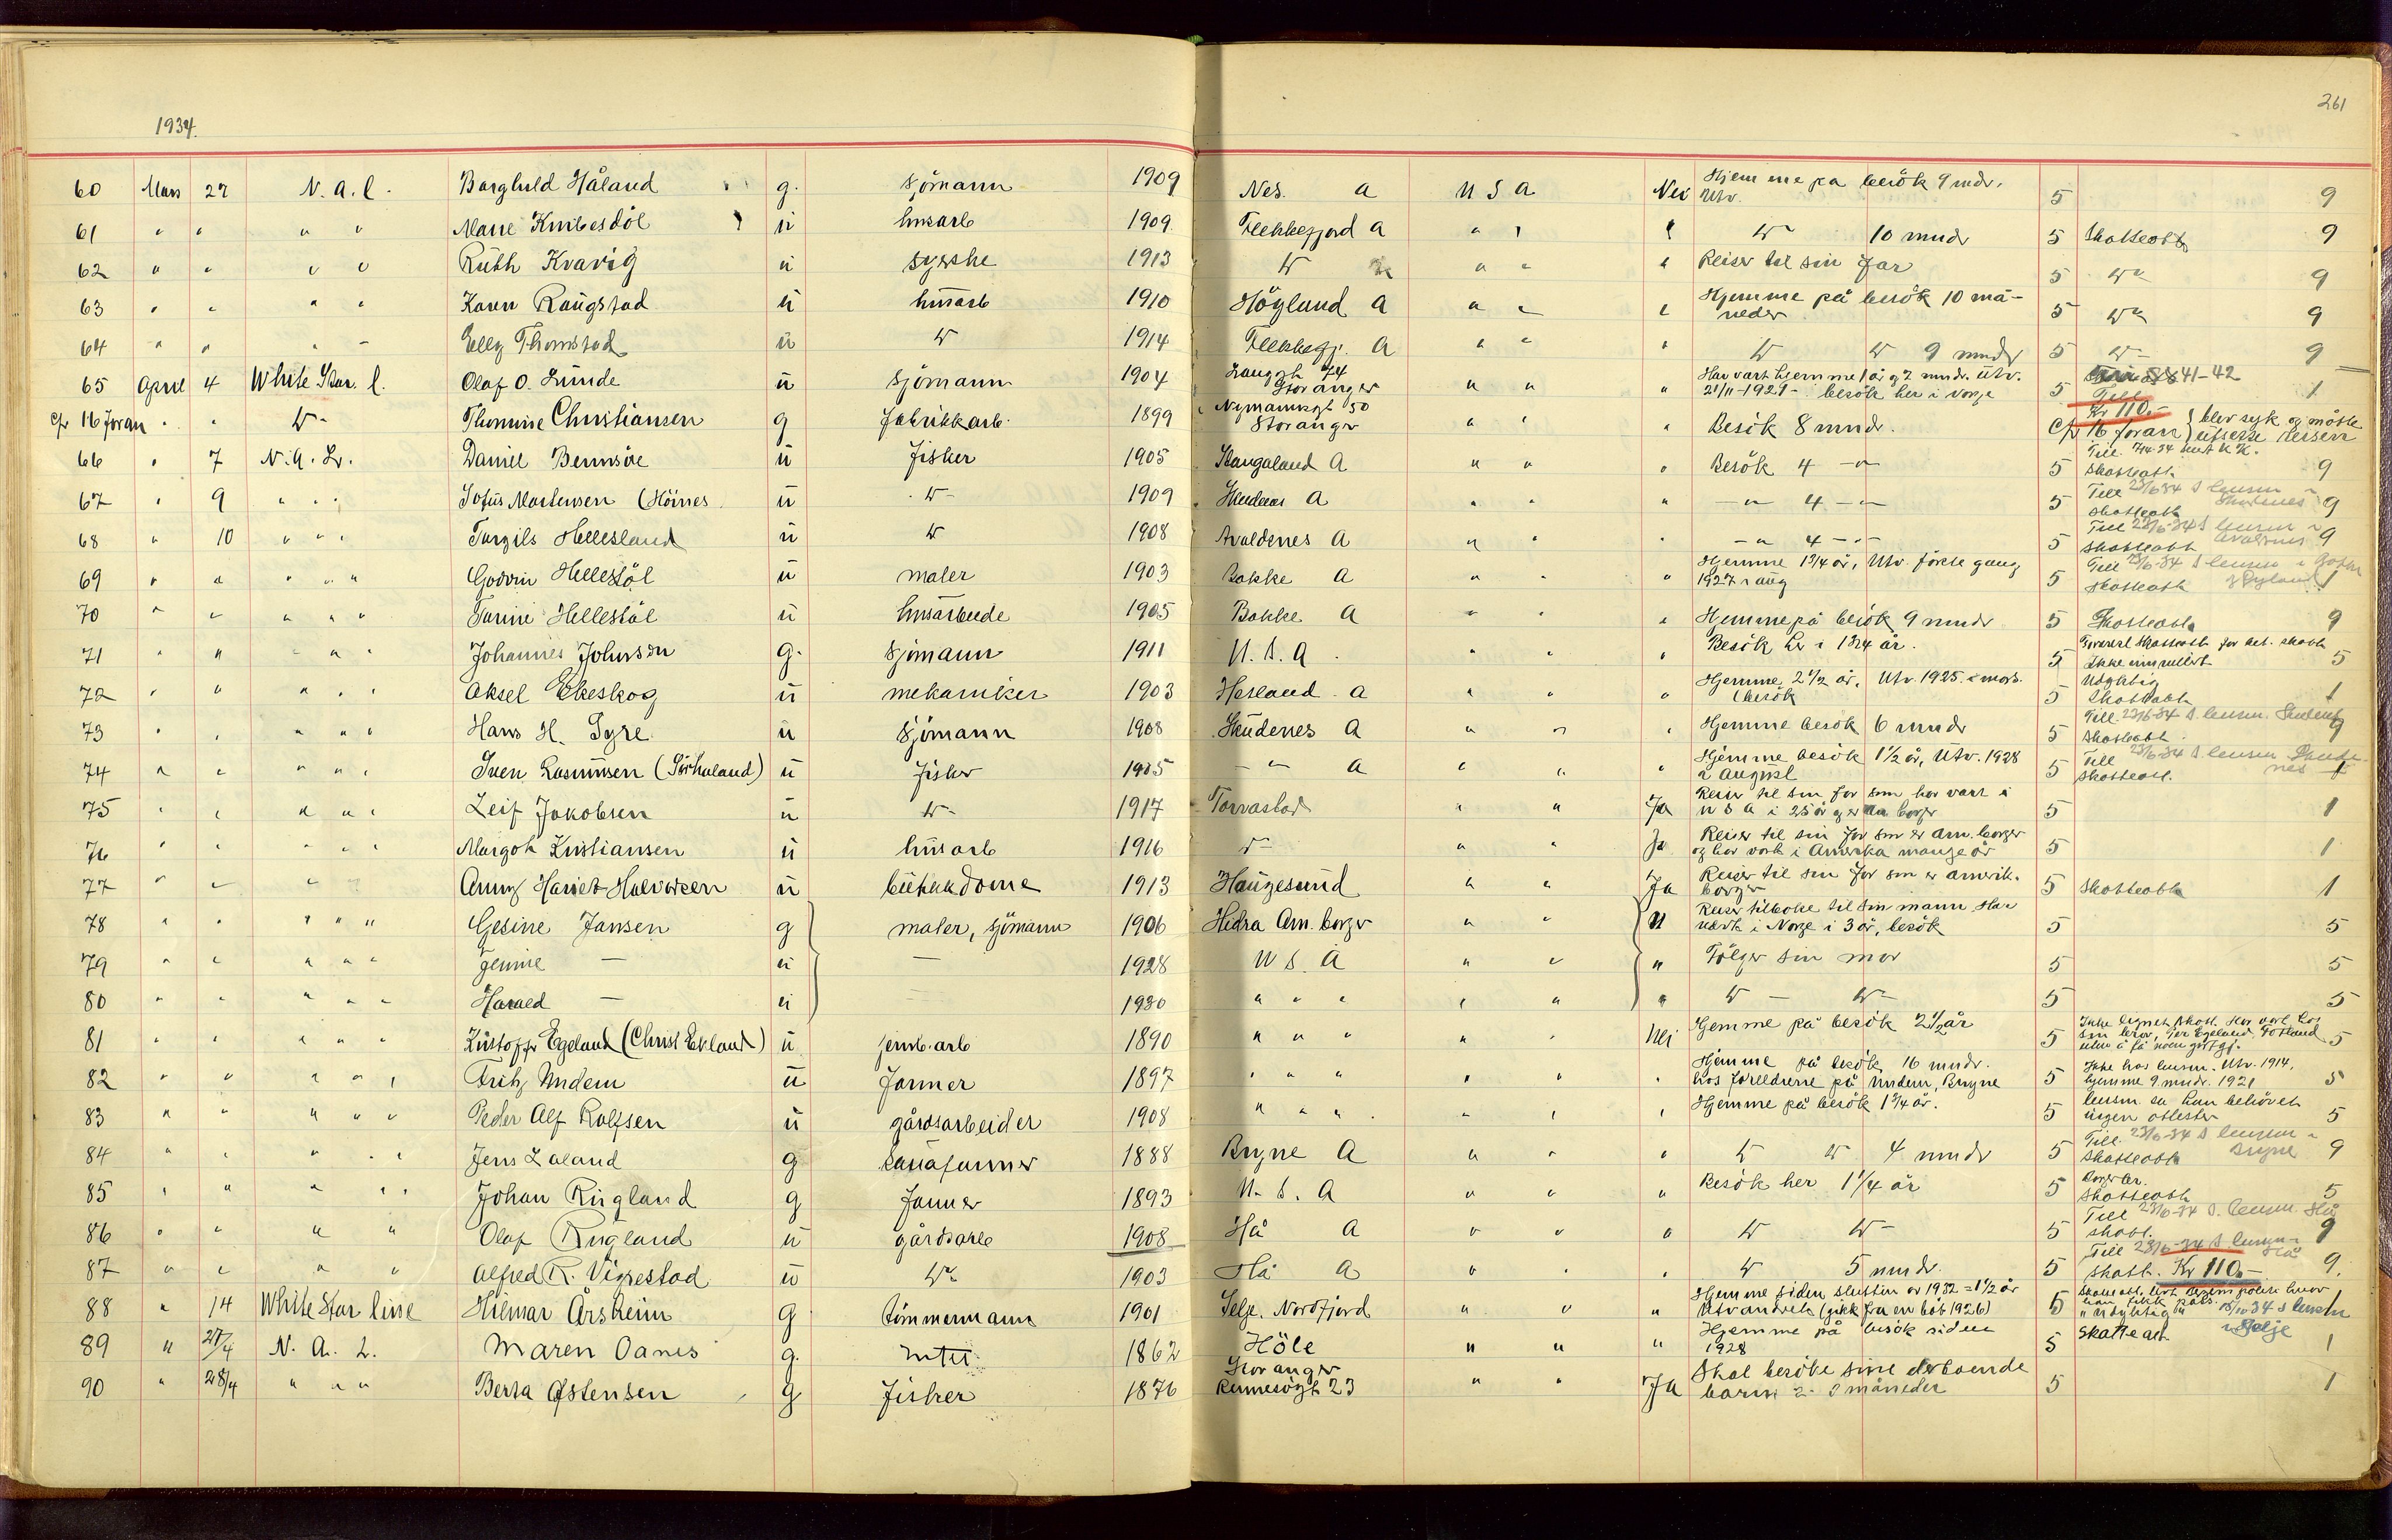 261
1934.
60 Mars 27 N. A. L. Borghild Håland g. sjömann 1909 Nes. A U S A Nei Hjemme på besök 9 mndr. 5 9
Utv.
61 " " " " Marie g husarb 1909 Flekkefjord A " " " Do 10 mndr 5 Skatteatt 9
62 " " " " Ruth Kvavig ü syerske 1913 Do " " " Reiser til sin far 5 Do 9
63 " " " " Karen Raugstad ü husarb 1910 Höyland A " " " Hjemme på besök 10 må- 5 Do 9
neder
64 " " " " Elly Thomstad ü Do 1914 Flekkefj. A " " " Do Do 9 mndr 5 Do 9
65 April 4 White Star. L. Olaf O. Lunde ü sjömann 1904 Langgt 74 " " " Har vært hjemme 1 år og 7 mndr. Utv. 5 41-42 1
Stavanger 21/11-1921- besök her i Norge
Cfr 16 foran " " Do Thomine Christiansen g fabrikkarb. 1899 Nymannsgt 50 " " " Besök 8 mndr. Cfr 16 foran Kr 110.- blev syk og måtte
Stavanger utsette reisen
66 " 7 N. A. L. Daniel ü fisker 1905 Skaugaland A " " " Besök 4 - " - 5 Skatteatt. 9
67 " 9 " " " Sofus Mortensen (Hörnes ü Do 1909 Skudenes A " " " - " - 4 - " - 5 Till 23/6 34 S lensm i Skudenes 9
Skatteatt
68 " 10 " " " Torgils Hellesland ü Do 1908 Avaldsnes A " " " - " - 4 - " - 5 Till 23/6-34 S lensm i Avaldsnes 9
Skatteatt
69 " " " " " Godvin Hellestöl ü maler 1903 Bakke A " " " Hjemme 1 3/4 år, Utv. förste gang 5 Till 23/6-34 S lensm i 1
1927 i aug Skatteatt
70 " " " " " Tarine Hellestöl ü husarbeide 1905 Bakke A " " " Hjemme på besök 9 mndr 5 Skatteatt 9
71 " " " " " Johannes Johnson g. sjömann 1911 U. S. A. " " " Besök her i 1 3/4 år. 5 Forevist Skatteatt for bet. skatt 5
Ikke innrullert
72 " " " " " Aksel Ekeskog ü mekaniker 1903 Hesland A " " " Hjemme 2 1/2 år. Utv. 1925 i mars. 5 Utsyktig 1
(besök Skatteatt
73 " " " " " Hans H. Syre ü sjömann 1908 Skudenes A " " " Hjemme besök 6 mndr 5 Till 23/6-34 S. lensm. 9
Skatteatt
74 " " " " " Sven Rasmussen (Sörhaland) ü fisker 1905 - " - A " " " Hjemme besök 1 1/2 år, Utv. 1928 5 Till 23/6-34 S lensm Skude- 1
i August Skatteatt. nes
75 " " " " " Leif Jakobsen ü Do 1917 Torvastad " " Ja Reiser til sin far som har vært i 5 1
U S A i 25 år og er borger
76 " " " " " Margot Kristiansen ü husarb 1916 Do " " Ja Reiser til sin far som er am. borger 5 1
og har vært i Amerika mange år
77 " " " Anny Hariet Halvorsen ü butikkdame 1913 Haugesund " " Ja Reiser til sin far som er amerik. 5 Skatteatt 1
borger
78 " " " " " Gesine Jansen g maler, sjömann 1906 Hidra Am. borger " " " Reiser tilbake til sin mann. Har 5 5
vært i Norge i 3 år, besök
79 " " " " " Jennie — ü — 1928 U S. A " " " Fölger sin mor 5 5
80 " " " " " Harald — ü 1930 " " " " " " Do - Do - 5 5
81 " " " " " Kristoffer Egeland (Christ Ekland) ü jernb. arb 1890 " " " " " Nei Hjemme på besök 2 1/2 år 5 Ikke lignet skatt. Har vært hos 5
sin bror, Tor Egeland
82 " " " " " Fritz Undem ü farmer 1897 " " " " " " Hjemme på besök, 16 mndr. 5 Ikke hos lensm. Utv. 1914, 5
hos foreldrene på Undem, Bryne hjemme 9 mndr. 1921
83 " " " " " Peder Alf Rolfsen ü gårdsarbeider 1908 " " " " " " Hjemme på besök 1 3/4 år. 5 lensm. sa han behövet 5
ingen attester
84 " " " " " Jens Laland g farmer 1888 Bryne A " " " Do Do 4 mndr 5 Till 23/6-34 S lensm i 9
Skatteatt Bryne
85 " " " " " Johan Rugland g farmer 1893 U. S. A " " " Besök her 1 1/4 år 5 5
Skatteatt
86 " " " " Olaf Rugland ü gårdsarb 1908 Hå A " " " Do Do - 5 Till 23/6-34 S. lensm. Hå 9
skatt.
87 " " " " Alfred R. Vigrestad ü Do 1903 Hå A " " " Do 5 mndr. 5 Till 23/6-34 S. lensm i Hå 9.
skatt. Kr 110.-
88 " 14 White Star line Hilmar Årsheim g tömmermann 1901 Selje. Nordfjord " " " Hjemme siden slutten av 1932 = 1 1/2 år 5 1
Utvandret (gikk fra en båt 1926) Selje
89 " 27/4 N. A. L. Maren Oanes g. intet 1862 Höle " " " Hjemme på besök siden 5 Skatteatt 1
1928
90 " 28/4 " " " Berta Østensen g fisker 1876 Stavanger " " Ja Skal besöke sine derboende 5 1
Rennesögt 23 barn måneder